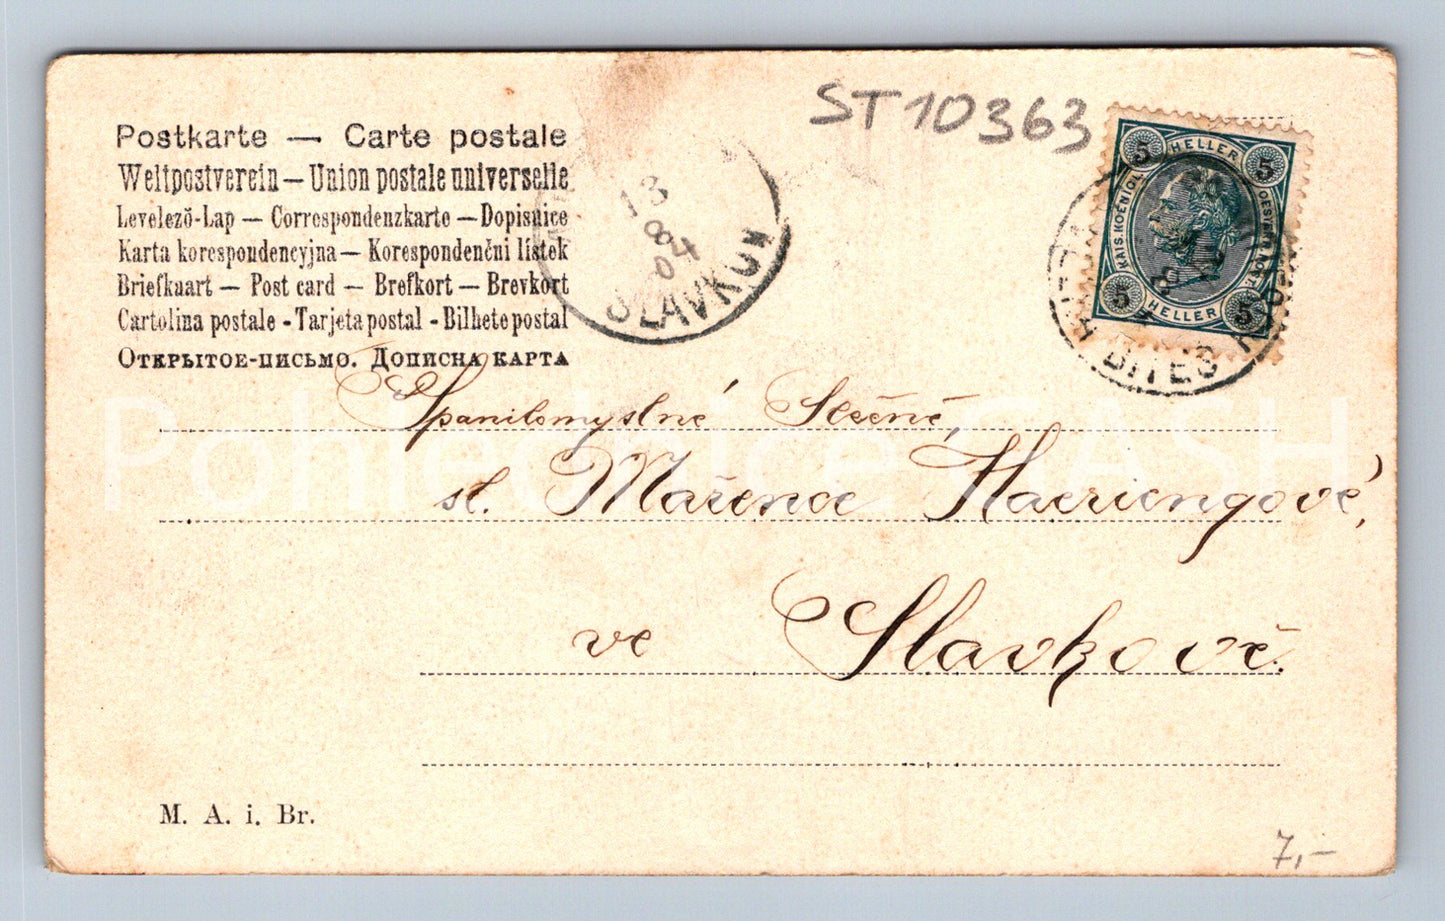 Postkarte — Carte postale
Weltpostverein — Union postale universelle
Levelező-Lap — Correspondenzkarte — Dopisnice
Karta korespondencyjna — Korespondenční lístek
Briefkaart — Post card — Brefkort — Brevkort
Cartolina postale - Tarjeta postal - Bilhete postal
Открытое-письмо. Дописна карта
ST10363
13
8
04
SLAVKOV
5 HELLER 5
KAIS. KOENIGL.
5 HELLER 5
BITEŠ
Spanilomyslné Slečně,
sl. Mařence
ve Slavkově.
M. A. i. Br.
7,-
Pohlednice SASH